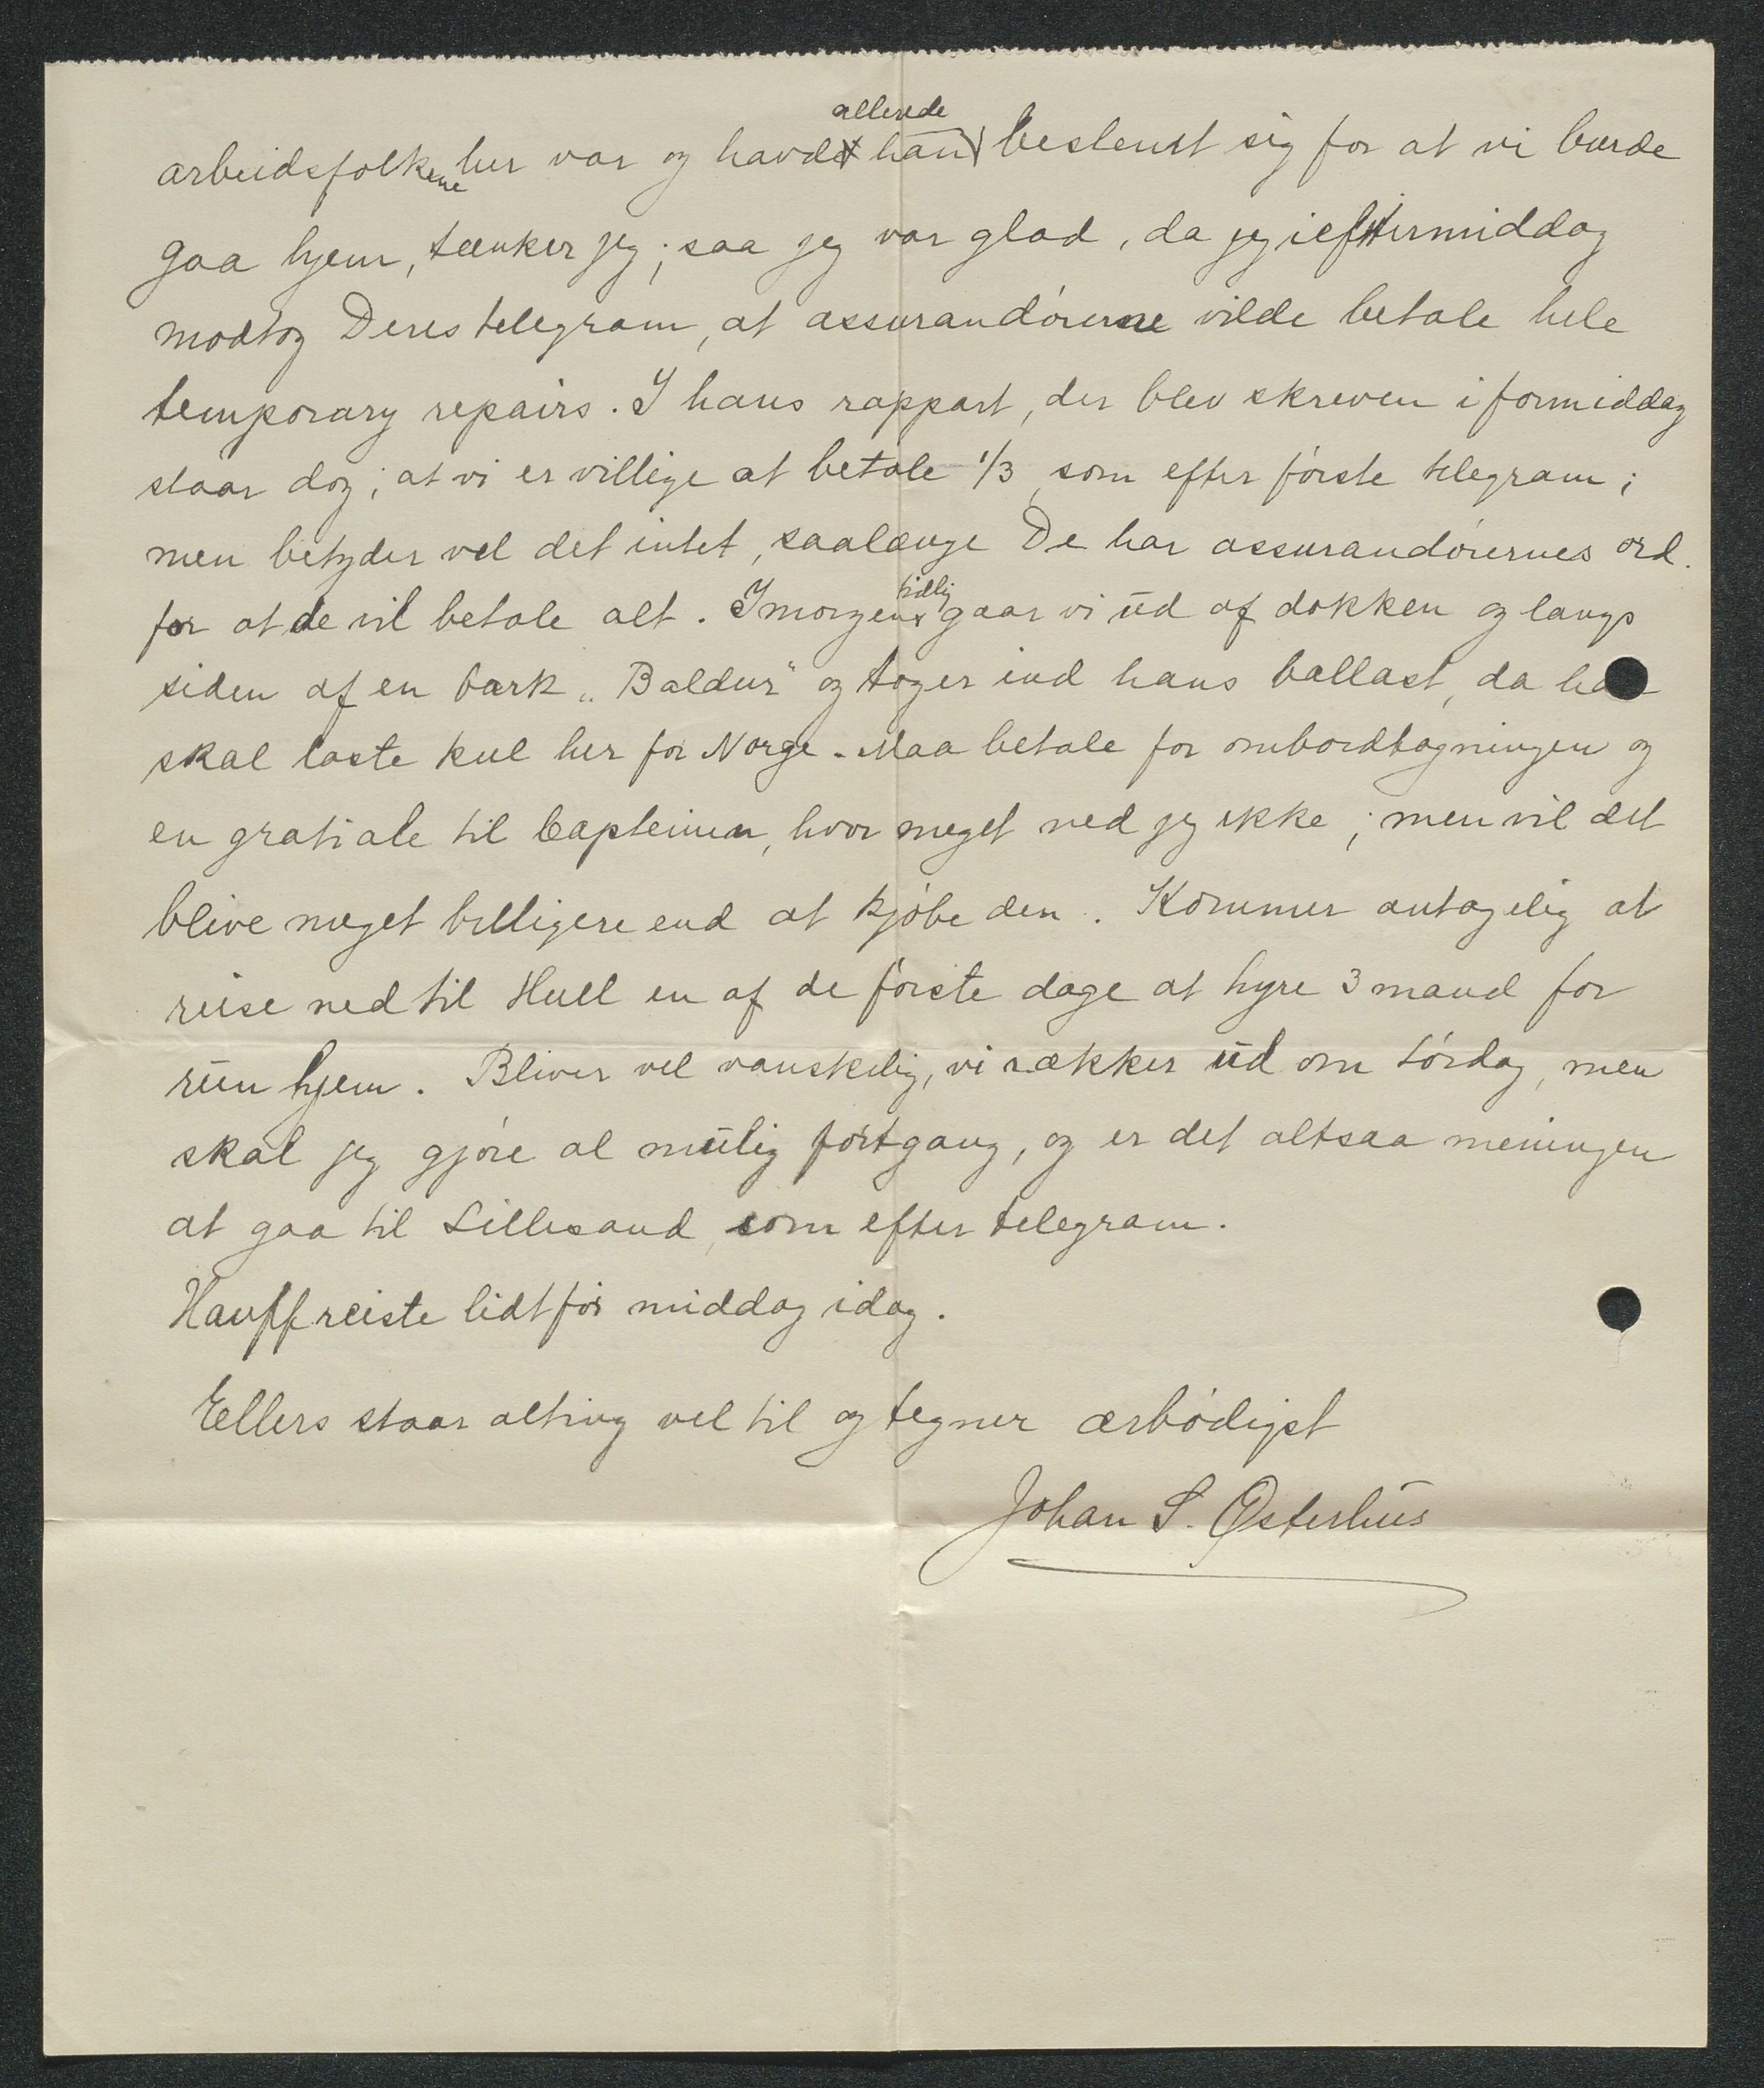 arbeidsfolkene her var og havde han allerede beslemt sig for at vi burde
gaa hjem, tænker jeg; saa jeg var glad, da jeg i eftermiddag
modtog Deres telegram, at assurandörerne vilde betale hele
temporary repairs. I hans rapport, der blev skreven i formiddag
staar dog; at vi er villige at betale 1/3, som efter förste telegram;
men betyder vel det intet, saalænge De har assurandörernes ord.
for at de vil betale alt. Imorgen tidlig gaar vi ud af dokken og langs
siden af en bark „Baldur" og tager ind hans ballast, da
skal laste kul her for Norge. Maa betale for ombordtagningen og
en gratiale til Capteinen, hvor meget ved jeg ikke; men vil det
blive meget billigere end at kjöbe den. Kommer antagelig at
reise ned til Hull en af de förste dage at hyre 3 mand for
run hjem. Bliver vel vanskelig, vi rækker ud om Lördag, men
skal jeg gjöre al mulig fortgang, og er det altsaa meningen
at gaa til Lillesand, som efter telegram.
Hauff reiste lidt för middag idag.
Ellers staar alting vel til og tegner ærbödigst
Johan S. Østerhus